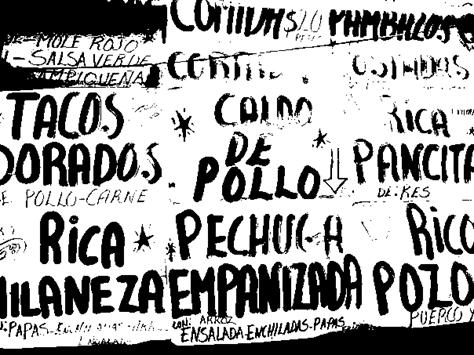 MOLE ROJO
-SALSA VERDE
AMPIQUEÑA
TACOS
DORADOS
DE POLLO-CARNE
RICA
MILANEZA
PAPAS
CALDO
DE
POLLO
PECHUGA
EMPANIZADA
CON: ARROZ
ENSALADA-ENCHILADAS-PAPAS
PAMBAZOS
RICA
PANCITA
DE: RES
RICO
POZO
PUERCO Y